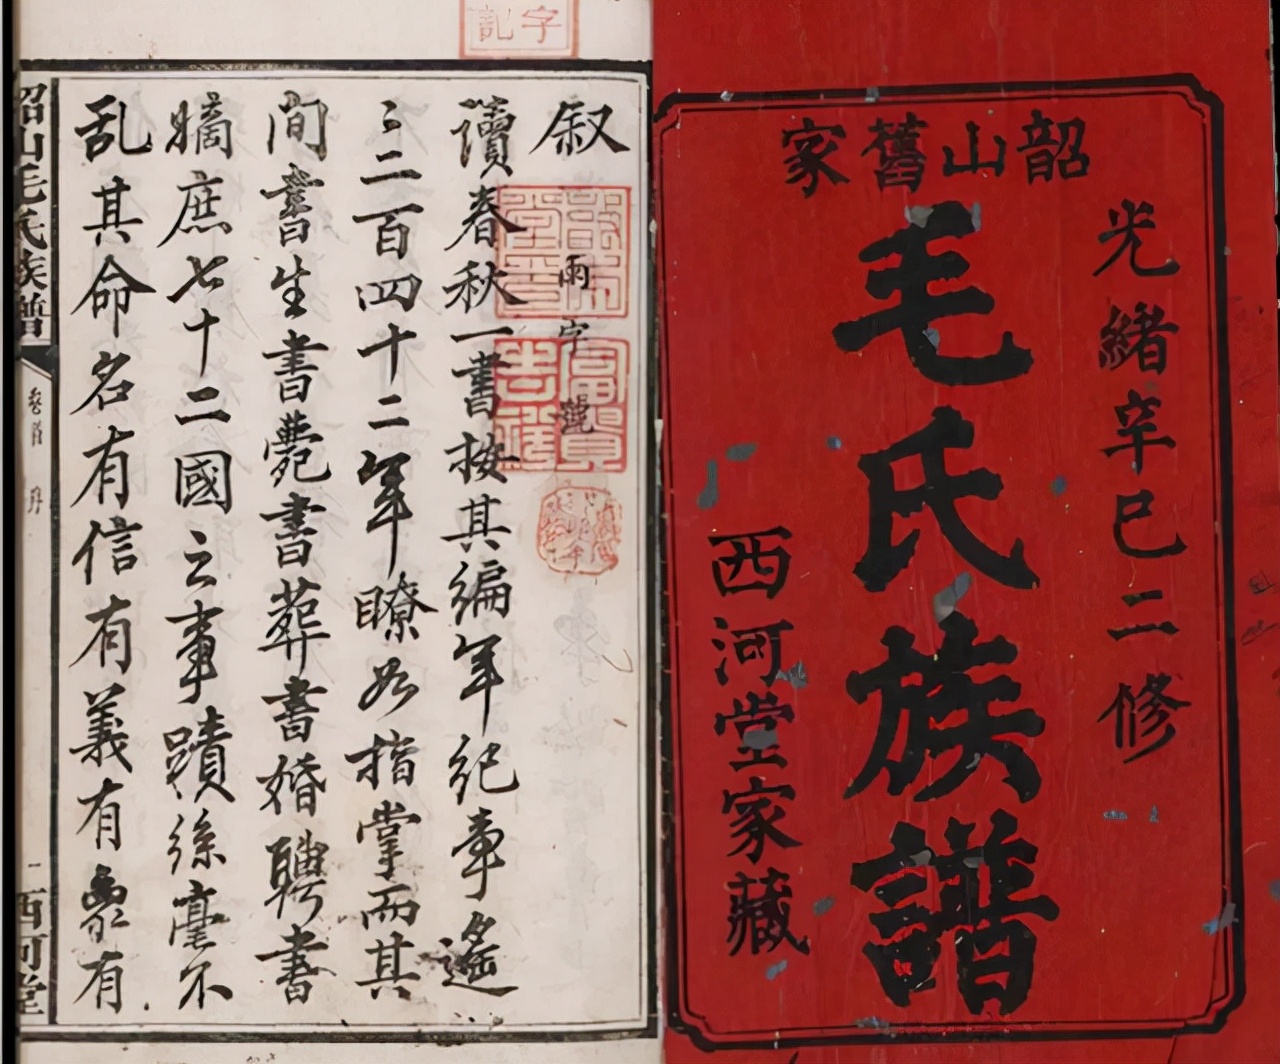 韶山舊家
光緒辛巳二修
毛氏族譜
西河堂家藏
叙
雨字號
讀春秋一書按其編年紀事遙
遙二百四十二年瞭如指掌而其
間書生書薨書葬書婚聘書
嫡庶七十二國之事蹟絲毫不
乱其命名有信有義有象有
韶山毛氏族譜
卷首
序
一
西河堂
字記
富貴吉祥